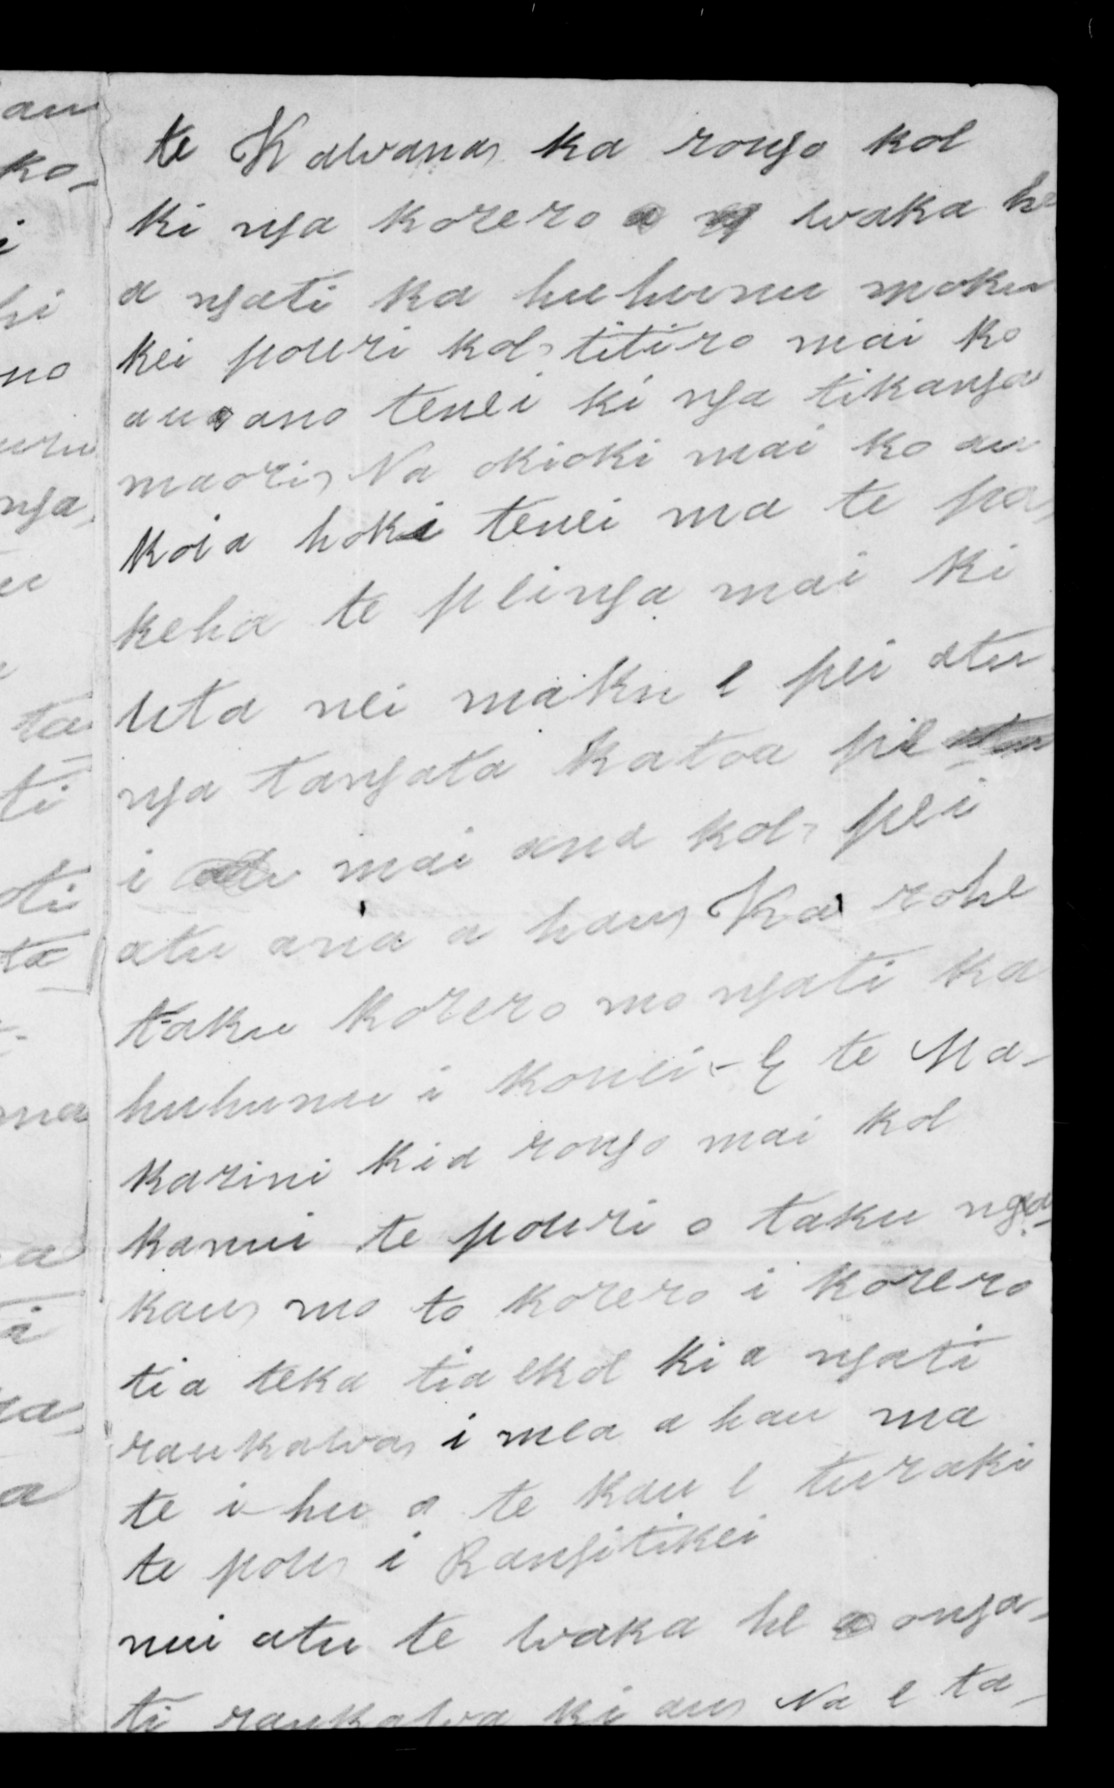 te Kawana, ka rongo koe
ki nga korero waka he
a ngati ka huhunu moku
kei pouri koe, titiro mai ko
au ano tenei ki nga tikanga
maori, Na okioki mai ko au
koia hoki tenei ma te pa,
keha te peinga mai ki
uta nei maku e pei atu
nga tangata katoa pe
i mai ana koe, pei
atu ana a hau, Ka rohe
taku korero mo ngati ka
huhunu i konei - E te Ma-
karini kia rongo mai koe
kanui te pouri o taku nga-
kau, mo to korero i korero
tia teka tia ekoe kia ngati
raukawa, i mea a hau ma
te i hu o te kau e turaki
te pou, i Rangitikei
nui atu te waka he onga-
ti raukawa ki au, Na e ta-
an
ko-
i
hi
no
uru
nga,
ta
ti
oti
ta
ma
a
a